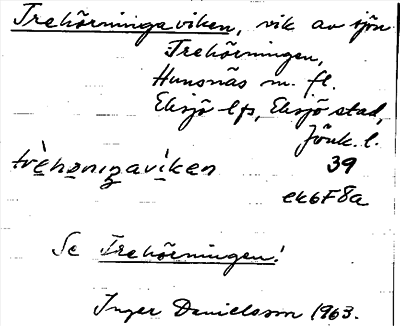 Trehörningaviken, vik av sjön
Trehörningen,
Hunsnäs m. fl.
Eksjö lfs, Eksjö stad,
Jönk. l.
39
ek6F8a
Se Trehörningen!
Inger Danielsson 1963.